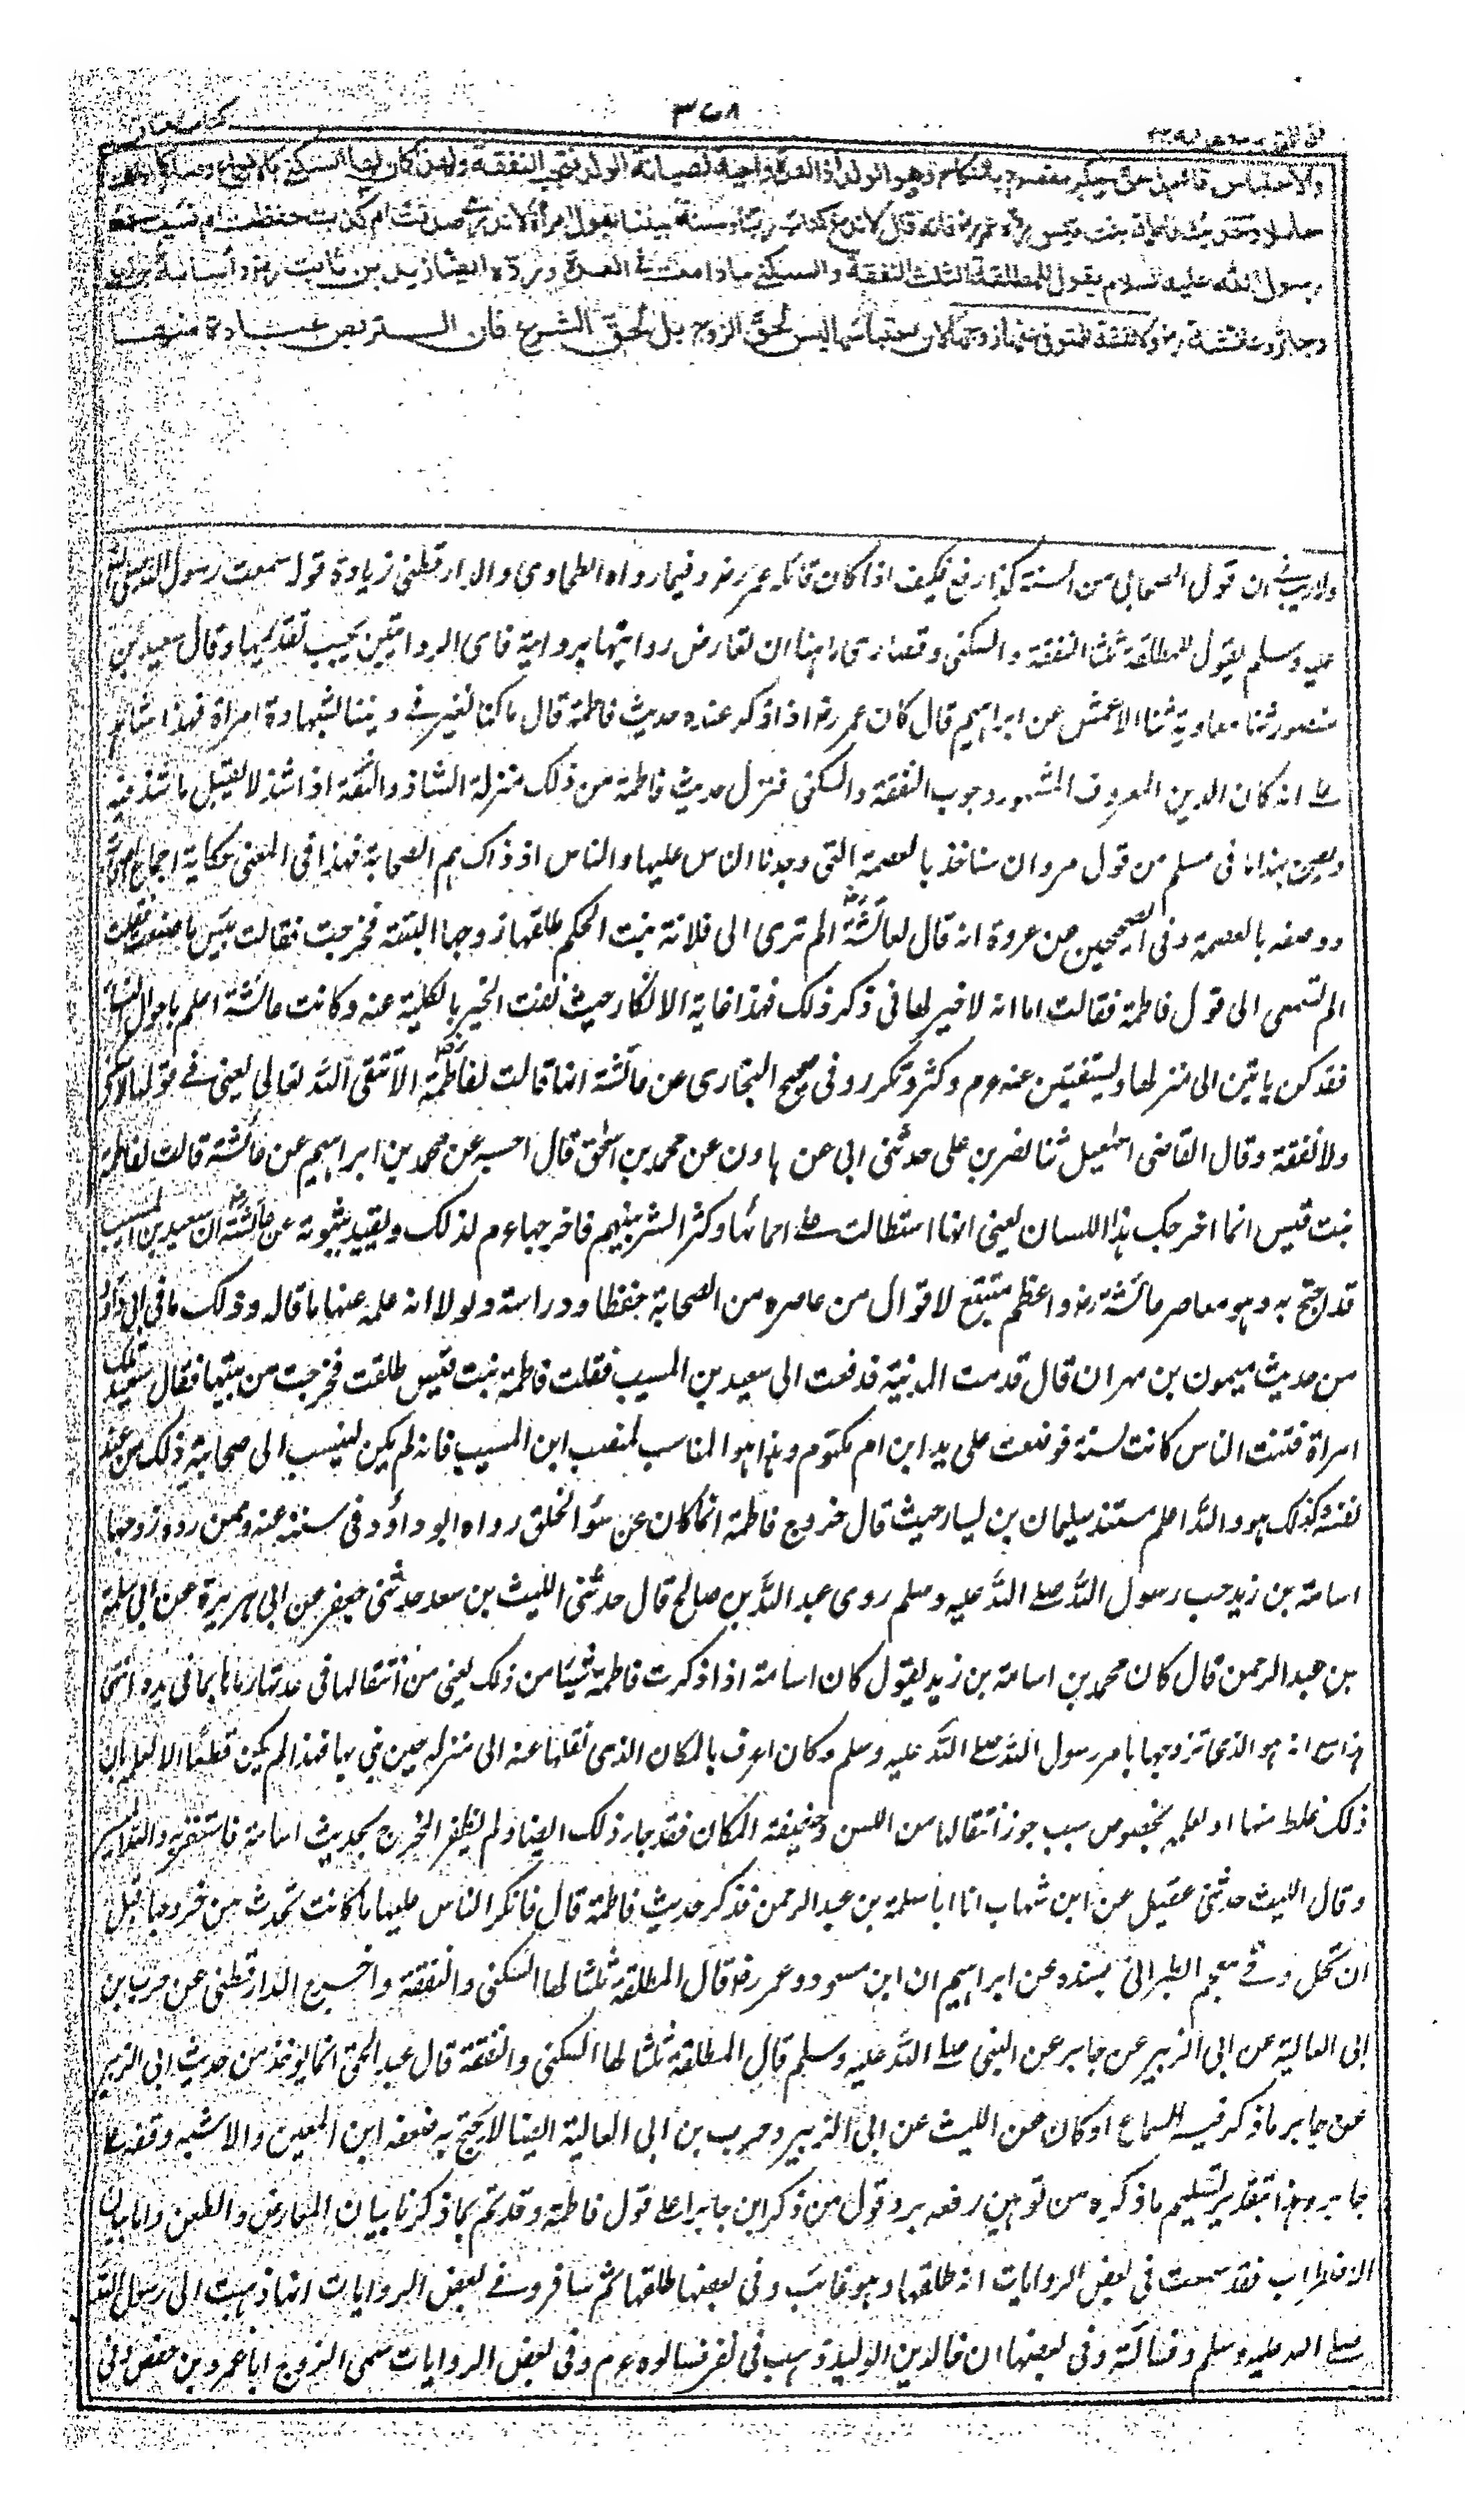 ٣٥٨
والاحتباس قائم في حق حكم مقصود بالنكاح وهو الولد اذ العدة واجبة لصيانة الولد فتجب النفقة ولهذا كان لها السكنى بالاجماع وصار كما اذا كانت
حاملا وحديث فاطمة بنت قيس رده عمر رضه فانه قال لا ندع كتاب ربنا وسنة نبينا بقول امرأة لا ندري صدقت ام كذبت حفظت ام نسيت سمعت
رسول الله عليه السلام يقول للمطلقة الثلث النفقة والسكنى ما دامت في العدة ورده ايضا زيد بن ثابت رضه واسامة بن زيد
وجابر وعائشة رضه ولا نفقة للمتوفى عنها زوجها لان احتباسها ليس لحق الزوج بل لحق الشرع فان التربص عبادة منها
ولا ريب في ان قول الصحابي من السنة كذا رفع فكيف اذا كان قائله عمر رضه وفيما رواه الطحاوي والدارقطني زيادة قوله سمعت رسول الله صلى الله
عليه وسلم يقول للمطلقة ثلثا النفقة والسكنى وقصارى ما هنا ان تعارض روايتها بروايته فاى الروايتين يجب تقديمها وقال سعيد بن
منصور ثنا معاوية ثنا الاعمش عن ابراهيم قال كان عمر رضه اذا ذكر عنده حديث فاطمة قال ما كنا نغير في ديننا بشهادة امرأة فهذا شاهد
على انه كان الدين المعروف المشهور وجوب النفقة والسكنى فتنزل حديث فاطمة من ذلك منزلة الشاذ والثقة اذا شذ لا يقبل ما شذ فيه
ويصرح بهذا ما في مسلم من قول مروان سناخذ بالعصمة التي وجدنا الناس عليها والناس اذ ذاك هم الصحابة فهذا في المعنى حكاية اجماع الصحابة
ووصفه بالعصمة وفى الصحيحين عن عروة انه قال لعائشة الم ترى الى فلانة بنت الحكم طلقها زوجها البتة فخرجت فقالت بئس ما صنعت فقلت
الم تسمعى الى قول فاطمة فقالت اما انه لا خير لها في ذكر ذلك فهذا غاية الانكار حيث نفت الخير بالكلية عنه وكانت عائشة اعلم باحوال النساء
فقد كن ياتين الى منزلها ويستفتين عنه عم وكثر وتكرر وفى صحيح البخارى عن عائشة انها قالت لفاطمة الا تتقى الله تعالى يعنى في قولها لا سكنى
ولا نفقة وقال القاضى اسمعيل ثنا نصر بن على حدثنى ابى عن هارون عن محمد بن اسحق قال احسبه عن محمد بن ابراهيم عن عائشة قالت لفاطمة
بنت قيس انما اخرجك هذا اللسان يعنى انها استطالت على احمائها وكثر الشر بينهم فاخرجها عم لذلك ويفيد ثبوته عن عائشة ان سعيد بن المسيب
قد احتج به وهو معاصر عائشة رضه واعظم متتبع لاقوال من عاصره من الصحابة حفظا ودراسة ولولا انه علمه عنها ما قاله وذلك ما في ابى داؤد
من حديث ميمون بن مهران قال قدمت المدينة فدفعت الى سعيد بن المسيب فقلت فاطمة بنت قيس طلقت فخرجت من بيتها فقال سعيد تلك
امرأة فتنت الناس كانت لسنة فوضعت على يد ابن ام مكتوم وهذا هو المناسب لمنصب ابن المسيب فانه لم يكن لينسب الى صحابية ذلك من عند
نفسه وكذلك هو والله اعلم مستند سليمان بن يسار حيث قال خروج فاطمة انما كان عن سوء الخلق رواه ابو داؤد في سننه عنه وممن رده زوجها
اسامة بن زيد حب رسول الله صلى الله عليه وسلم روى عبد الله بن صالح قال حدثنى الليث بن سعد حدثنى جعفر عن ابى هريرة عن ابى سلمة
بن عبد الرحمن قال كان محمد بن اسامة بن زيد يقول كان اسامة اذا ذكرت فاطمة شيئا من ذلك يعنى من انتقالها في عدتها رماها بما في يده انتهى
هذا مع انه هو الذى تزوجها بامر رسول الله صلى الله عليه وسلم وكان اعرف بالمكان الذى نقلها عنه الى منزله حين بنى بها فهذا لم يكن قطعا الا لعلمه بان
ذلك غلط منها او لعلمه بخصوص سبب جواز انتقالها من اللسن وخيفة المكان فقد جاء ذلك ايضا ولم يظفر المخرج بحديث اسامة فاستغربه والله الميسر
وقال الليث حدثنى عقيل عن ابن شهاب انا ابا سلمة بن عبد الرحمن فذكر حديث فاطمة قال فانكر الناس عليها ما كانت تحدث من خروجها قبل
ان تحل وفى معجم الطبرانى بسنده عن ابراهيم ان ابن مسعود وعمر رضه قالا المطلقة ثلثا لها السكنى والنفقة واخرج الدارقطنى عن حرب بن
ابى العالية عن ابى الزبير عن جابر عن النبى صلى الله عليه وسلم قال المطلقة ثلثا لها السكنى والنفقة قال عبد الحق انما يؤخذ من حديث ابى الزبير
عن جابر ما ذكر فيه السماع او كان عن الليث عن ابى الزبير وحرب بن ابى العالية ايضا لا يحتج به ضعفه ابن المعين والاشبه وقفه على
جابر وهذا بتقدير تسليم ما ذكره من توهين رفعه يرد قول من ذكر ابن جابرا على قول فاطمة وقد تم بما ذكرنا بيان المعارض والطعن واما بيان
الاضطراب فقد سمعت في بعض الروايات انه طلقها وهو غائب وفى بعضها طلقها ثم سافر وفى بعض الروايات انها ذهبت الى رسول الله
صلى الله عليه وسلم وسألته وفى بعضها ان خالد بن الوليد ذهب في نفر فسالوه عم وفى بعض الروايات سمى الزوج ابا عمرو بن حفص وفى